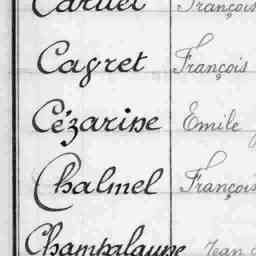 Cartier François
Cagret François
Cézarine Emile
Chalmel François
Champalaune Jean